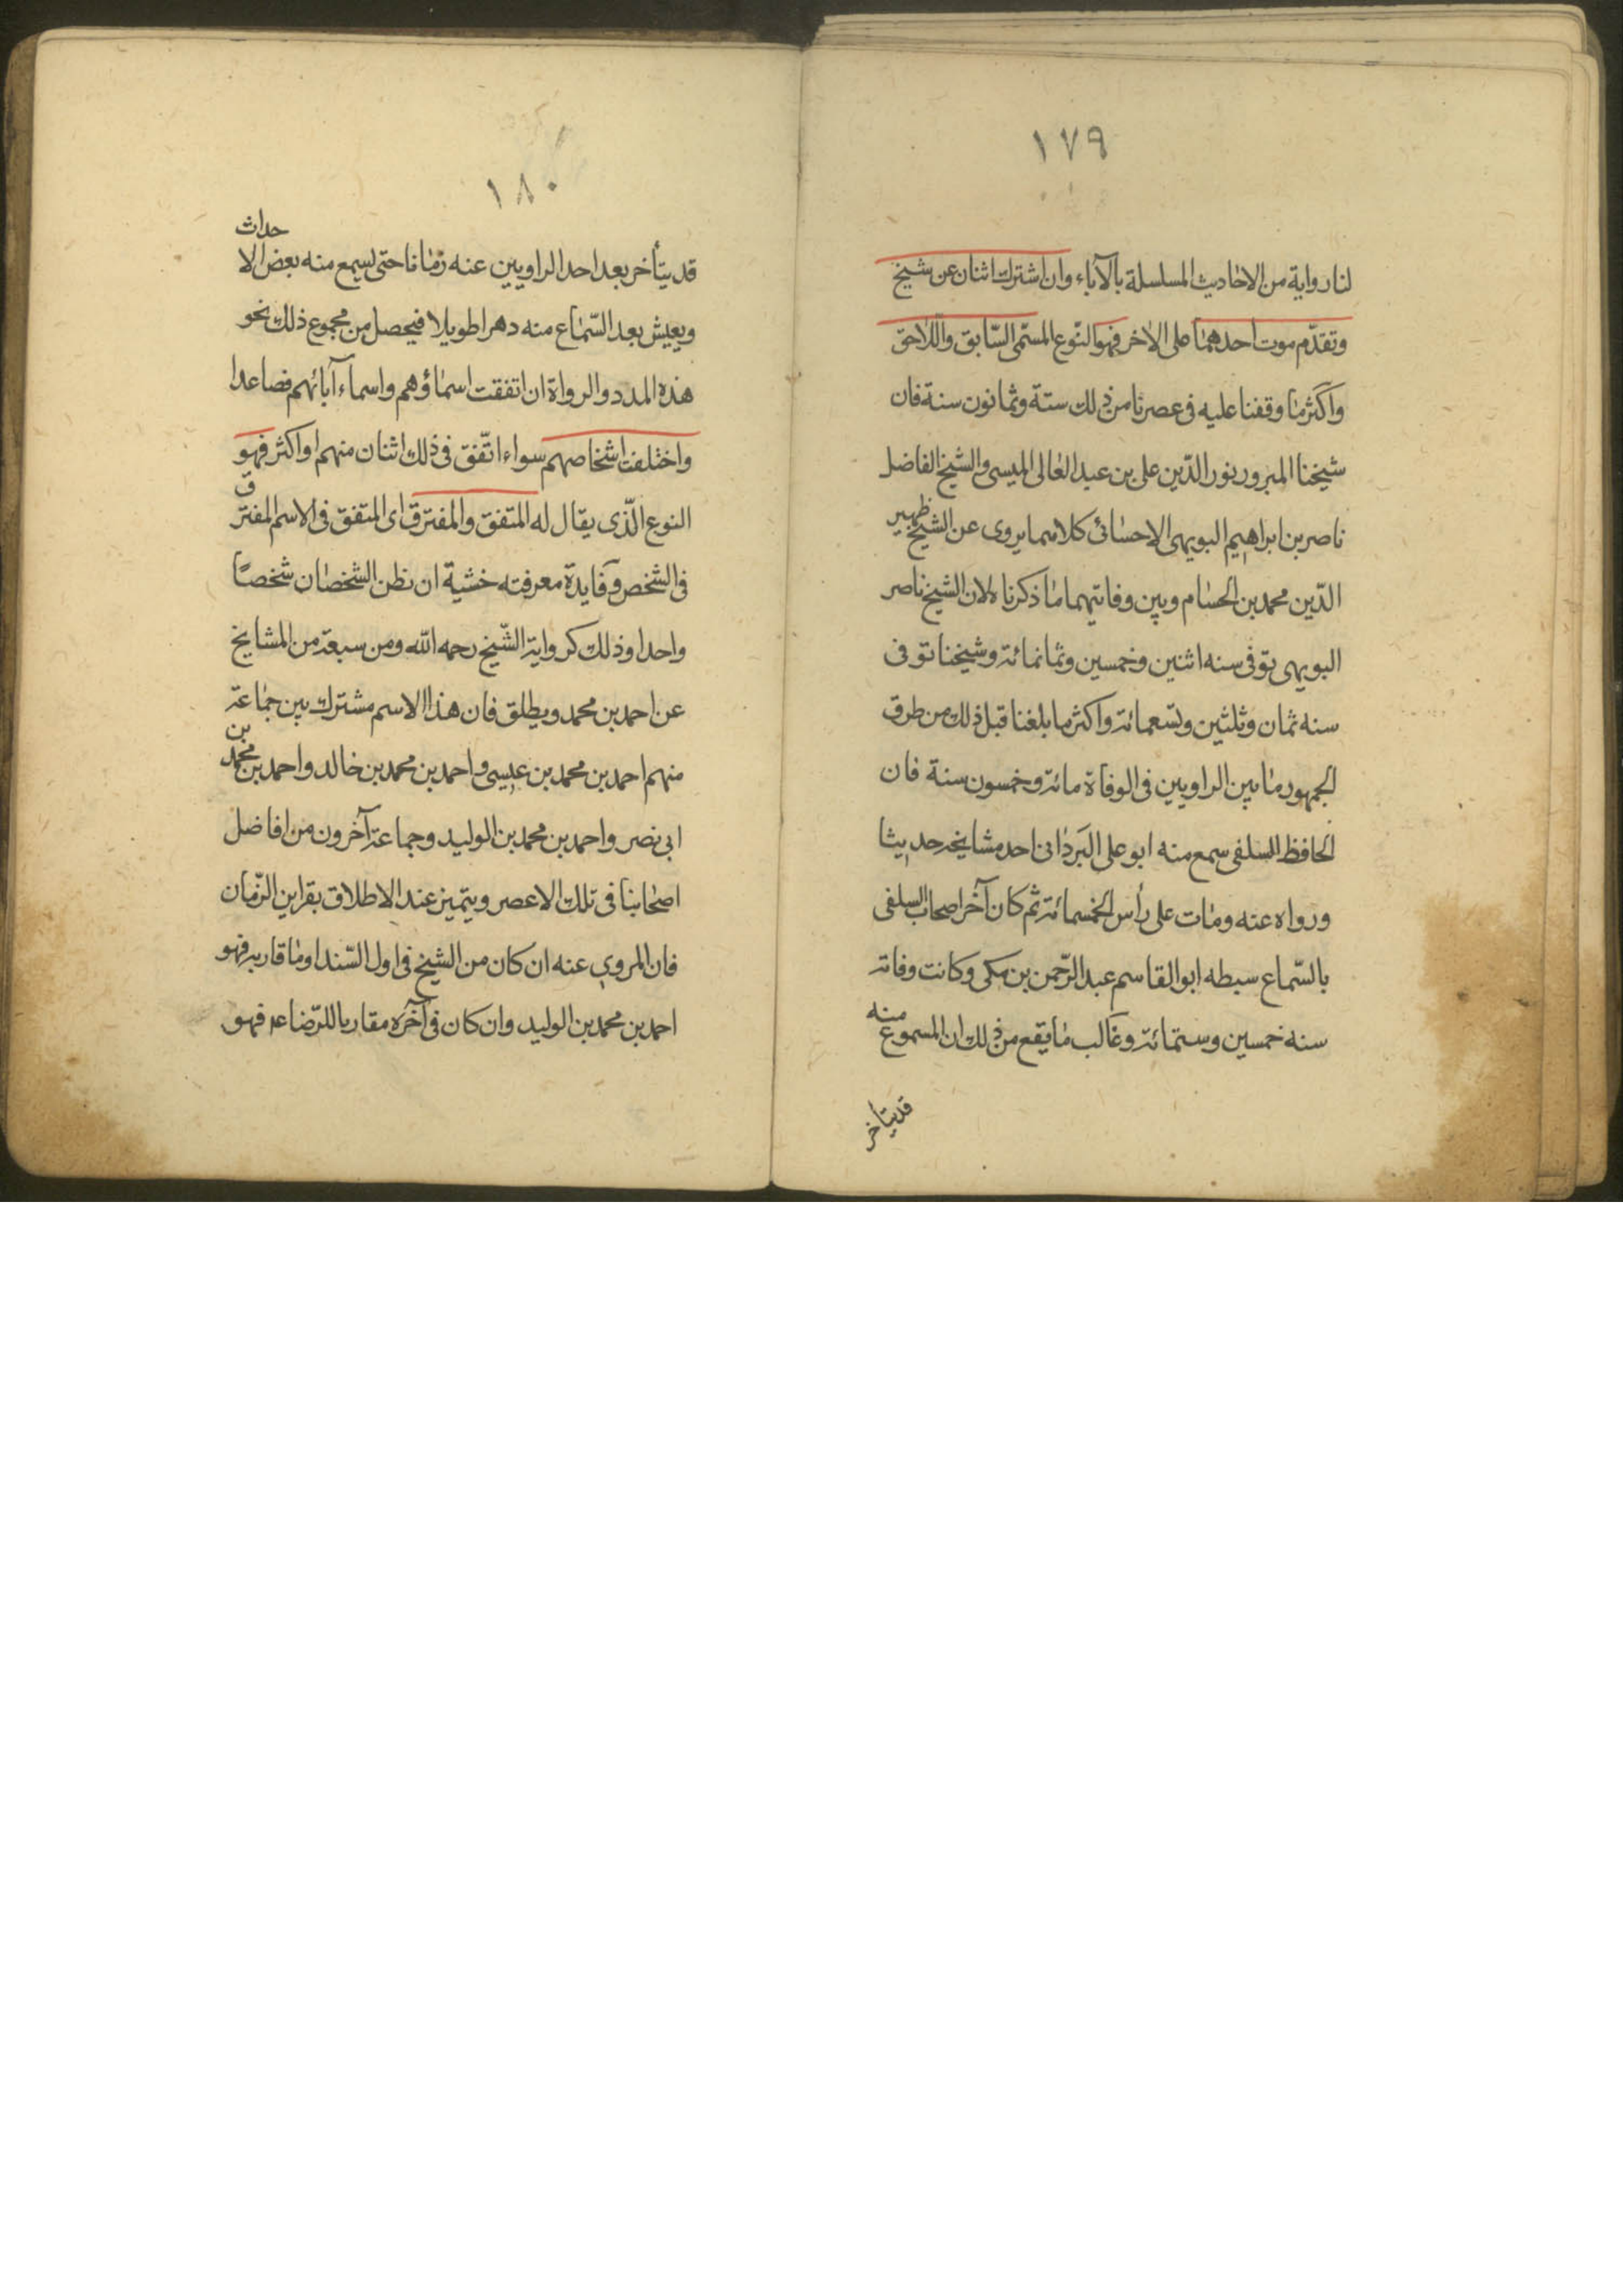 ١٧٩
لنا رواية من الاحاديث المسلسلة بالآباء وان اشترك اثنان عن شيخ
وتقدّم موت احدهما على الاخر فهو النّوع المسمّى السّابق واللّاحق
واكثر ما وقفنا عليه فى عصرنا من ذلك ستة وثمانون سنة فان
شيخنا المبرور نور الدّين على بن عبد العالى الميسى والشيخ الفاضل
ناصر بن ابراهيم البويهى الاحسائى كلاهما يروى عن الشيخ ظهير
الدّين محمد بن الحسام وبين وفاتيهما ما ذكرناه لان الشيخ ناصر
البويهى توفى سنه اثنين وخمسين وثمانمائة وشيخنا توفى
سنه ثمان وثلثين وتسعمائة واكثر ما بلغنا قبل ذلك من طرق
الجمهور ما بين الراويين فى الوفاة مائة وخمسون سنة فان
الحافظ السلفى سمع منه ابو على البَردانى احد مشايخه حديثا
ورواه عنه ومات على رأس الخمسمائة ثم كان آخر اصحاب السلفى
بالسّماع سبطه ابو القاسم عبد الرّحمن بن مكى وكانت وفاته
سنه خمسين وستمائة وغالب ما يقع من ذلك ان المسموع منه
قد يتأخر
١٨٠
قد يتأخر بعد احد الراويين عنه زمانا حتى يسمع منه بعض الاحداث
ويعيش بعد السّماع منه دهرا طويلا فيحصل من مجموع ذلك نحو
هذه المدد والرواة ان اتفقت اسماؤهم واسماء آبائهم فصاعدا
واختلفت اشخاصهم سواء اتّفق فى ذلك اثنان منهم او اكثر فهو
النوع الّذى يقال له المتفق والمفترق اى المتفق فى الاسم المفترق
فى الشخص وفايدة معرفته خشية ان نظن الشخصان شخصًا
واحدا وذلك كرواية الشّيخ رحمه الله ومن سبعة من المشايخ
عن احمد بن محمد ويطلق فان هذا الاسم مشترك بين جماعة
منهم احمد بن محمد بن عيسى واحمد بن محمد بن خالد واحمد بن محمد بن
ابى نصر واحمد بن محمد بن الوليد وجماعة آخرون من افاضل
اصحابنا فى تلك الاعصر ويتميز عند الاطلاق بقراين الزّمان
فان المروى عنه ان كان من الشيخ فى اول السّند او ما قاربه فهو
احمد بن محمد بن الوليد وان كان فى آخره مقاربا للرّضا عه فهو